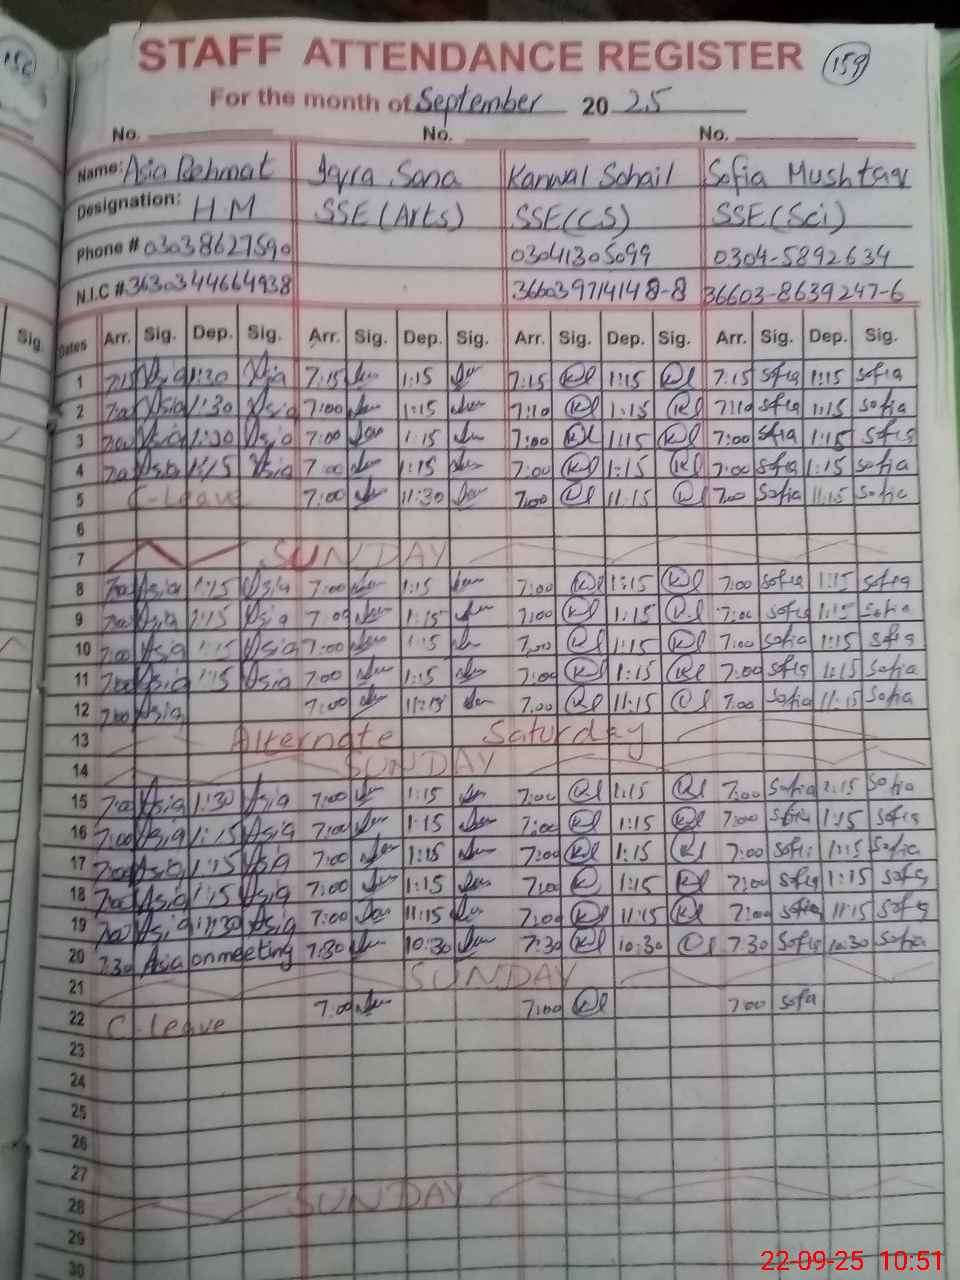 156
STAFF ATTENDANCE REGISTER 159
For the month of September 20 25
No. No. No.
Name: Asia Rehmat Iqra Sana Kanwal Sohail Sofia Mushtaq
Designation: HM SSE(Arts) SSE(CS) SSE(Sci)
Phone # 03038627590 03041305099 0304-5892634
N.I.C # 3630344664938 366039714148-8 36603-8639247-6
Sig. Dates Arr. Sig. Dep. Sig. Arr. Sig. Dep. Sig. Arr. Sig. Dep. Sig. Arr. Sig. Dep. Sig.
1 7:15 Asia 1:30 Asia 7:15 1:15 7:15 Kl 1:15 Kl 7:15 Sofia 1:15 Sofia
2 7:00 Asia 1:30 Asia 7:00 1:15 7:10 Kl 1:15 Kl 7:10 Sofia 1:15 Sofia
3 7:00 Asia 1:30 Asia 7:00 1:15 7:00 Kl 1:15 Kl 7:00 Sofia 1:15 Sofia
4 7:00 Asia 1:15 Asia 7:00 1:15 7:00 Kl 1:15 Kl 7:00 Sofia 1:15 Sofia
5 C-Leave 7:00 11:30 7:00 Kl 11:15 Kl 7:00 Sofia 11:15 Sofia
6
7 SUNDAY
8 7:00 Asia 1:15 Asia 7:00 1:15 7:00 Kl 1:15 Kl 7:00 Sofia 1:15 Sofia
9 7:00 Asia 1:15 Asia 7:00 1:15 7:00 Kl 1:15 Kl 7:00 Sofia 1:15 Sofia
10 7:00 Asia 1:15 Asia 7:00 1:15 7:00 Kl 1:15 Kl 7:00 Sofia 1:15 Sofia
11 7:00 Asia 1:15 Asia 7:00 1:15 7:00 Kl 1:15 Kl 7:00 Sofia 1:15 Sofia
12 7:00 Asia 7:00 11:15 7:00 Kl 11:15 Kl 7:00 Sofia 11:15 Sofia
13 Alternate Saturday
14 SUNDAY
15 7:00 Asia 1:30 Asia 7:00 1:15 7:00 Kl 1:15 Kl 7:00 Sofia 1:15 Sofia
16 7:00 Asia 1:15 Asia 7:00 1:15 7:00 Kl 1:15 Kl 7:00 Sofia 1:15 Sofia
17 7:00 Asia 1:15 Asia 7:00 1:15 7:00 Kl 1:15 Kl 7:00 Sofia 1:15 Sofia
18 7:00 Asia 1:15 Asia 7:00 1:15 7:00 K 1:15 Kl 7:00 Sofia 1:15 Sofia
19 7:00 Asia 11:30 Asia 7:00 11:15 7:00 Kl 11:15 Kl 7:00 Sofia 11:15 Sofia
20 7:30 Asia on meeting 7:30 10:30 7:30 Kl 10:30 Kl 7:30 Sofia 10:30 Sofia
21 SUNDAY
22 C-Leave 7:00 7:00 Kl 7:00 Sofa
23
24
25
26
27
28 SUNDAY
29
30
22-09-25 10:51